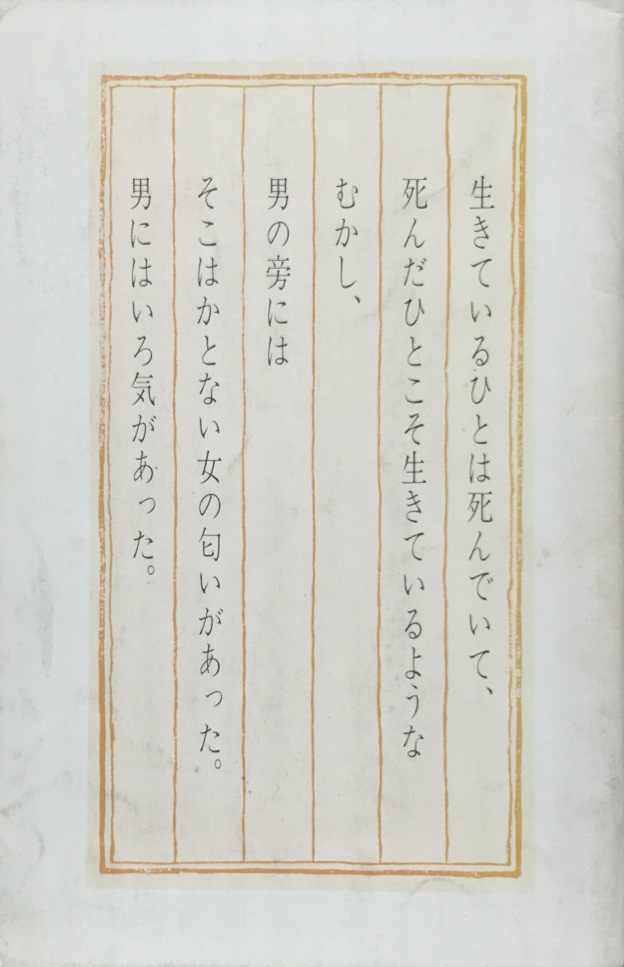 生きているひとは死んでいて、
死んだひとこそ生きているような
むかし、
男の旁には
そこはかとない女の匂いがあった。
男にはいろ気があった。